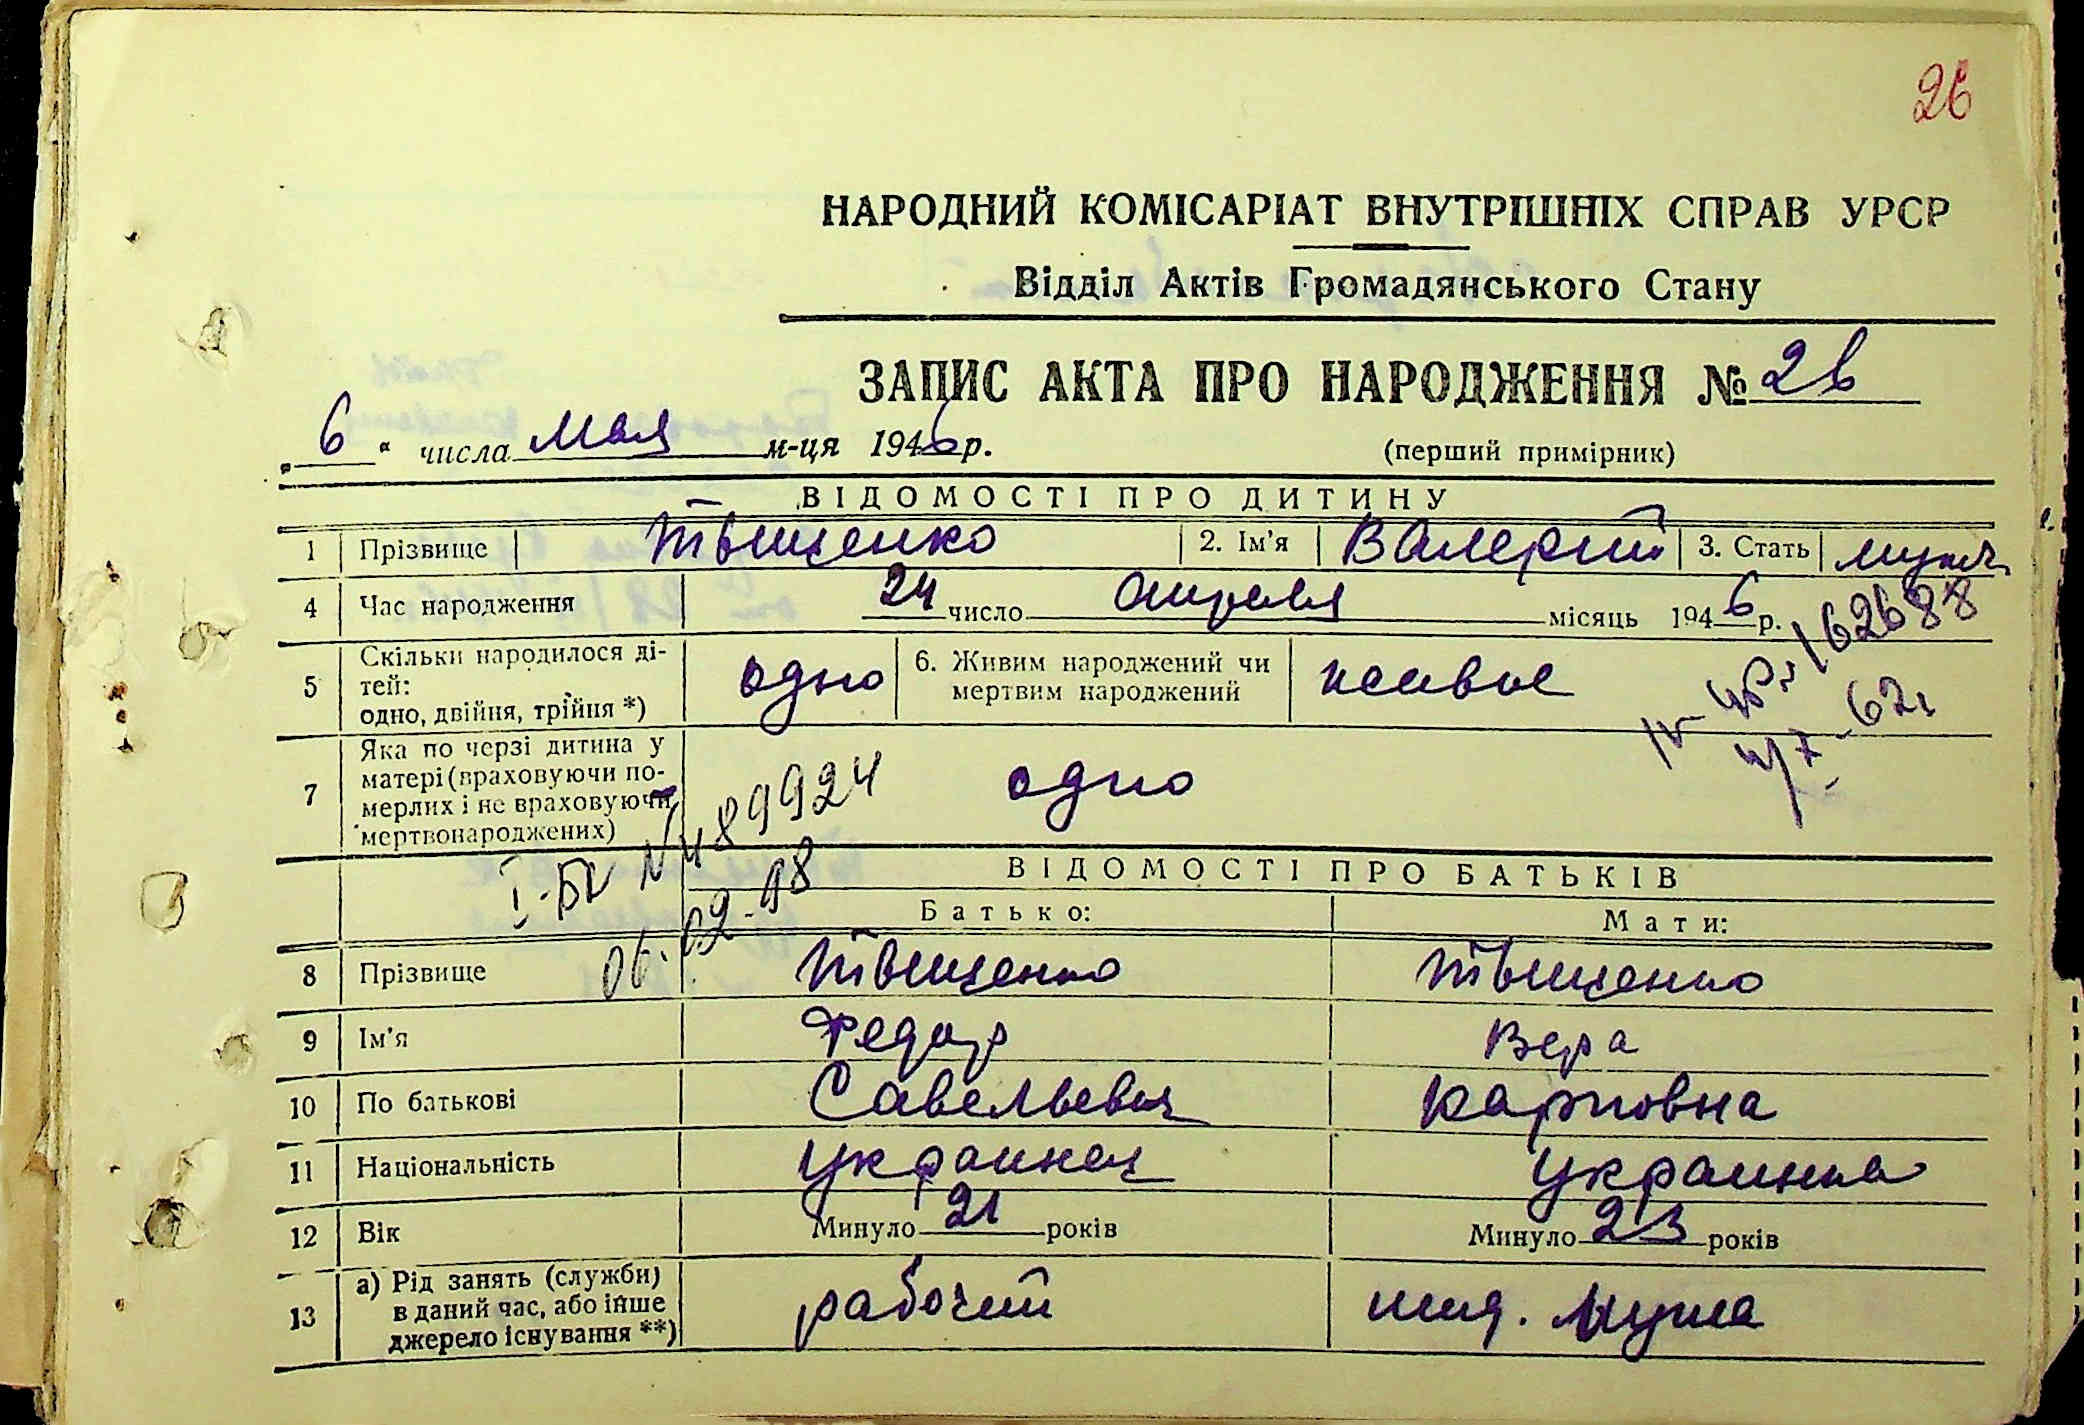 26
НАРОДНИЙ КОМІСАРІАТ ВНУТРІШНІХ СПРАВ УРСР
Відділ Актів Громадянського Стану
ЗАПИС АКТА ПРО НАРОДЖЕННЯ № 26
„ 6 “ числа мая м-ця 1946 р. (перший примірник)
ВІДОМОСТІ ПРО ДИТИНУ
1 Прізвище Тыщенко 2. Ім'я Валерий 3. Стать муж.
4 Час народження 24 число апреля місяць 1946 р.
5 Скільки народилося ді-
тей:
одно, двійня, трійня *) одно 6. Живим народжений чи
мертвим народжений живое
162688
7 Яка по черзі дитина у
матері (враховуючи по-
мерлих і не враховуючи
мертвонароджених) одно
I-БК № 489924
06.02-98
ВІДОМОСТІ ПРО БАТЬКІВ
Батько: Мати:
8 Прізвище Тыщенко Тыщенко
9 Ім'я Федор Вера
10 По батькові Савельевич Карповна
11 Національність украинец украинка
12 Вік Минуло 21 років Минуло 23 років
13 а) Рід занять (служби)
в даний час, або інше
джерело існування **) рабочий ижд. мужа